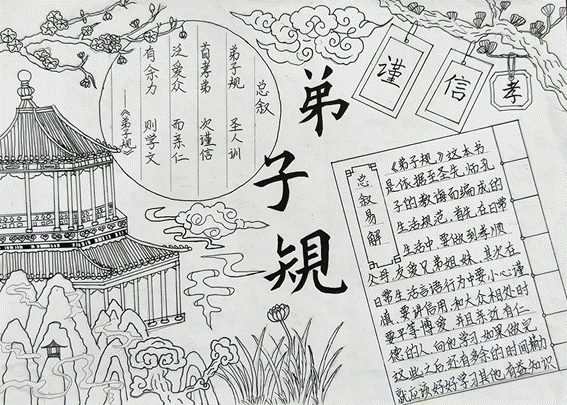 弟子規
总叙
弟子规 圣人训
首孝弟 次谨信
泛爱众 而亲仁
有余力 则学文
——《弟子规》
谨
信
孝
总叙易解
《弟子规》这本书
是依据至圣先师孔
子的教诲而编成的
生活规范,首先在日常
生活中,要做到孝顺
父母,友爱兄弟姐妹,其次在
日常生活言语行为中要小心谨
慎,要讲信用,和大众相处时
要平等博爱,并且亲近有仁
德的人,向他学习,如果做完
这些之后,还有多余的时间精力
就应该好好学习其他有益知识